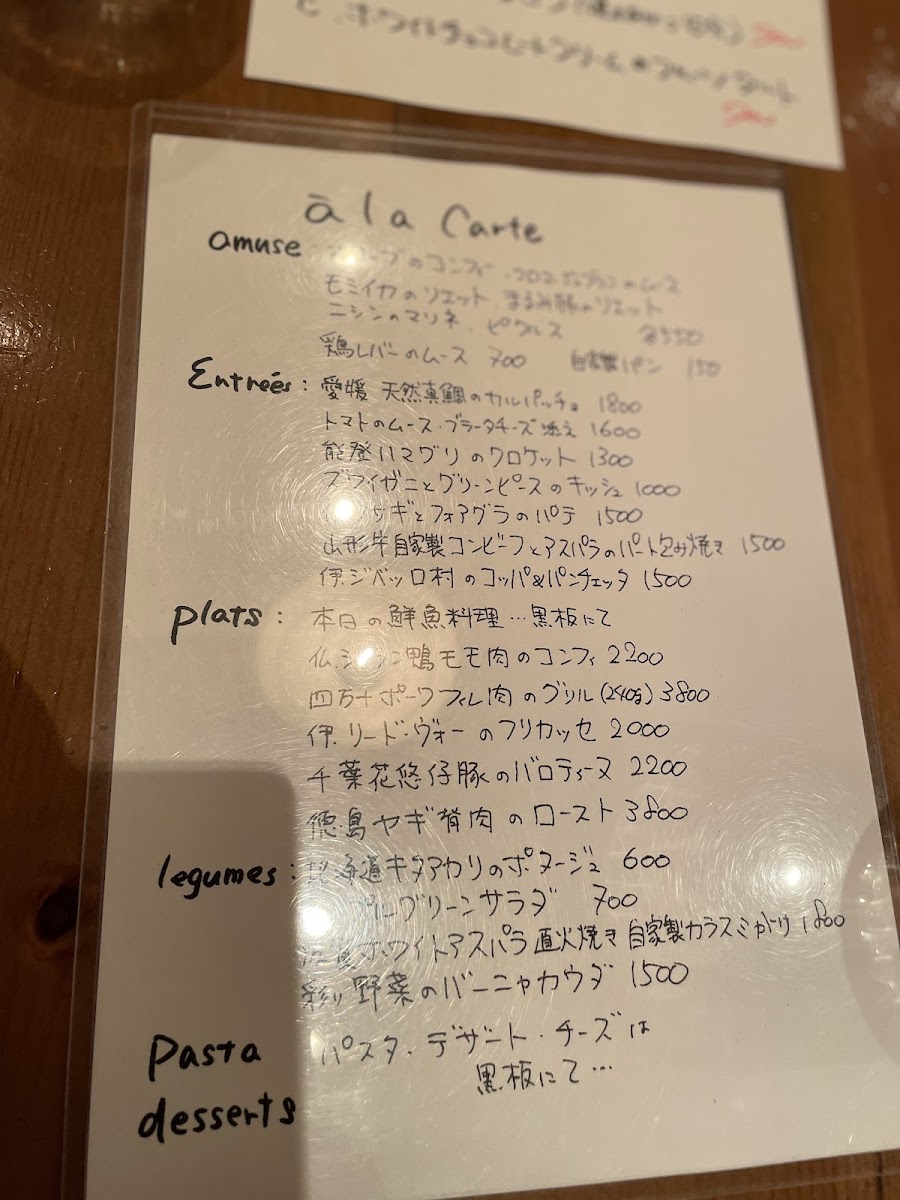 ホワイトチョコレートクリーム
à la Carte
amuse : のコンフィ・のムース
モミイカのリエット、まるみ豚のリエット
ニシンのマリネ、ピクルス @550
鶏レバーのムース 700 自家製パン 150
Entreés : 愛媛 天然真鯛のカルパッチョ 1800
トマトのムース・ブラータチーズ添え 1600
能登ハマグリのクロケット 1300
ズワイガニとグリーンピースのキッシュ 1000
サギとフォアグラのパテ 1500
山形牛自家製コンビーフとアスパラのパート包み焼き 1500
伊.ジベッロ村のコッパ&パンチェッタ 1500
plats : 本日の鮮魚料理…黒板にて
仏.シャラン鴨モモ肉のコンフィ 2200
四万十ポークフィレ肉のグリル(240g) 3800
伊.リード・ヴォーのフリカッセ 2000
千葉花悠仔豚のバロティーヌ 2200
徳島ヤギ背肉のロースト 3800
legumes : 北海道キタアカリのポタージュ 600
グリーンサラダ 700
ホワイトアスパラ直火焼き 自家製カラスミがけ 1800
野菜のバーニャカウダ 1500
Pasta パスタ・デザート・チーズは
desserts 黒板にて…